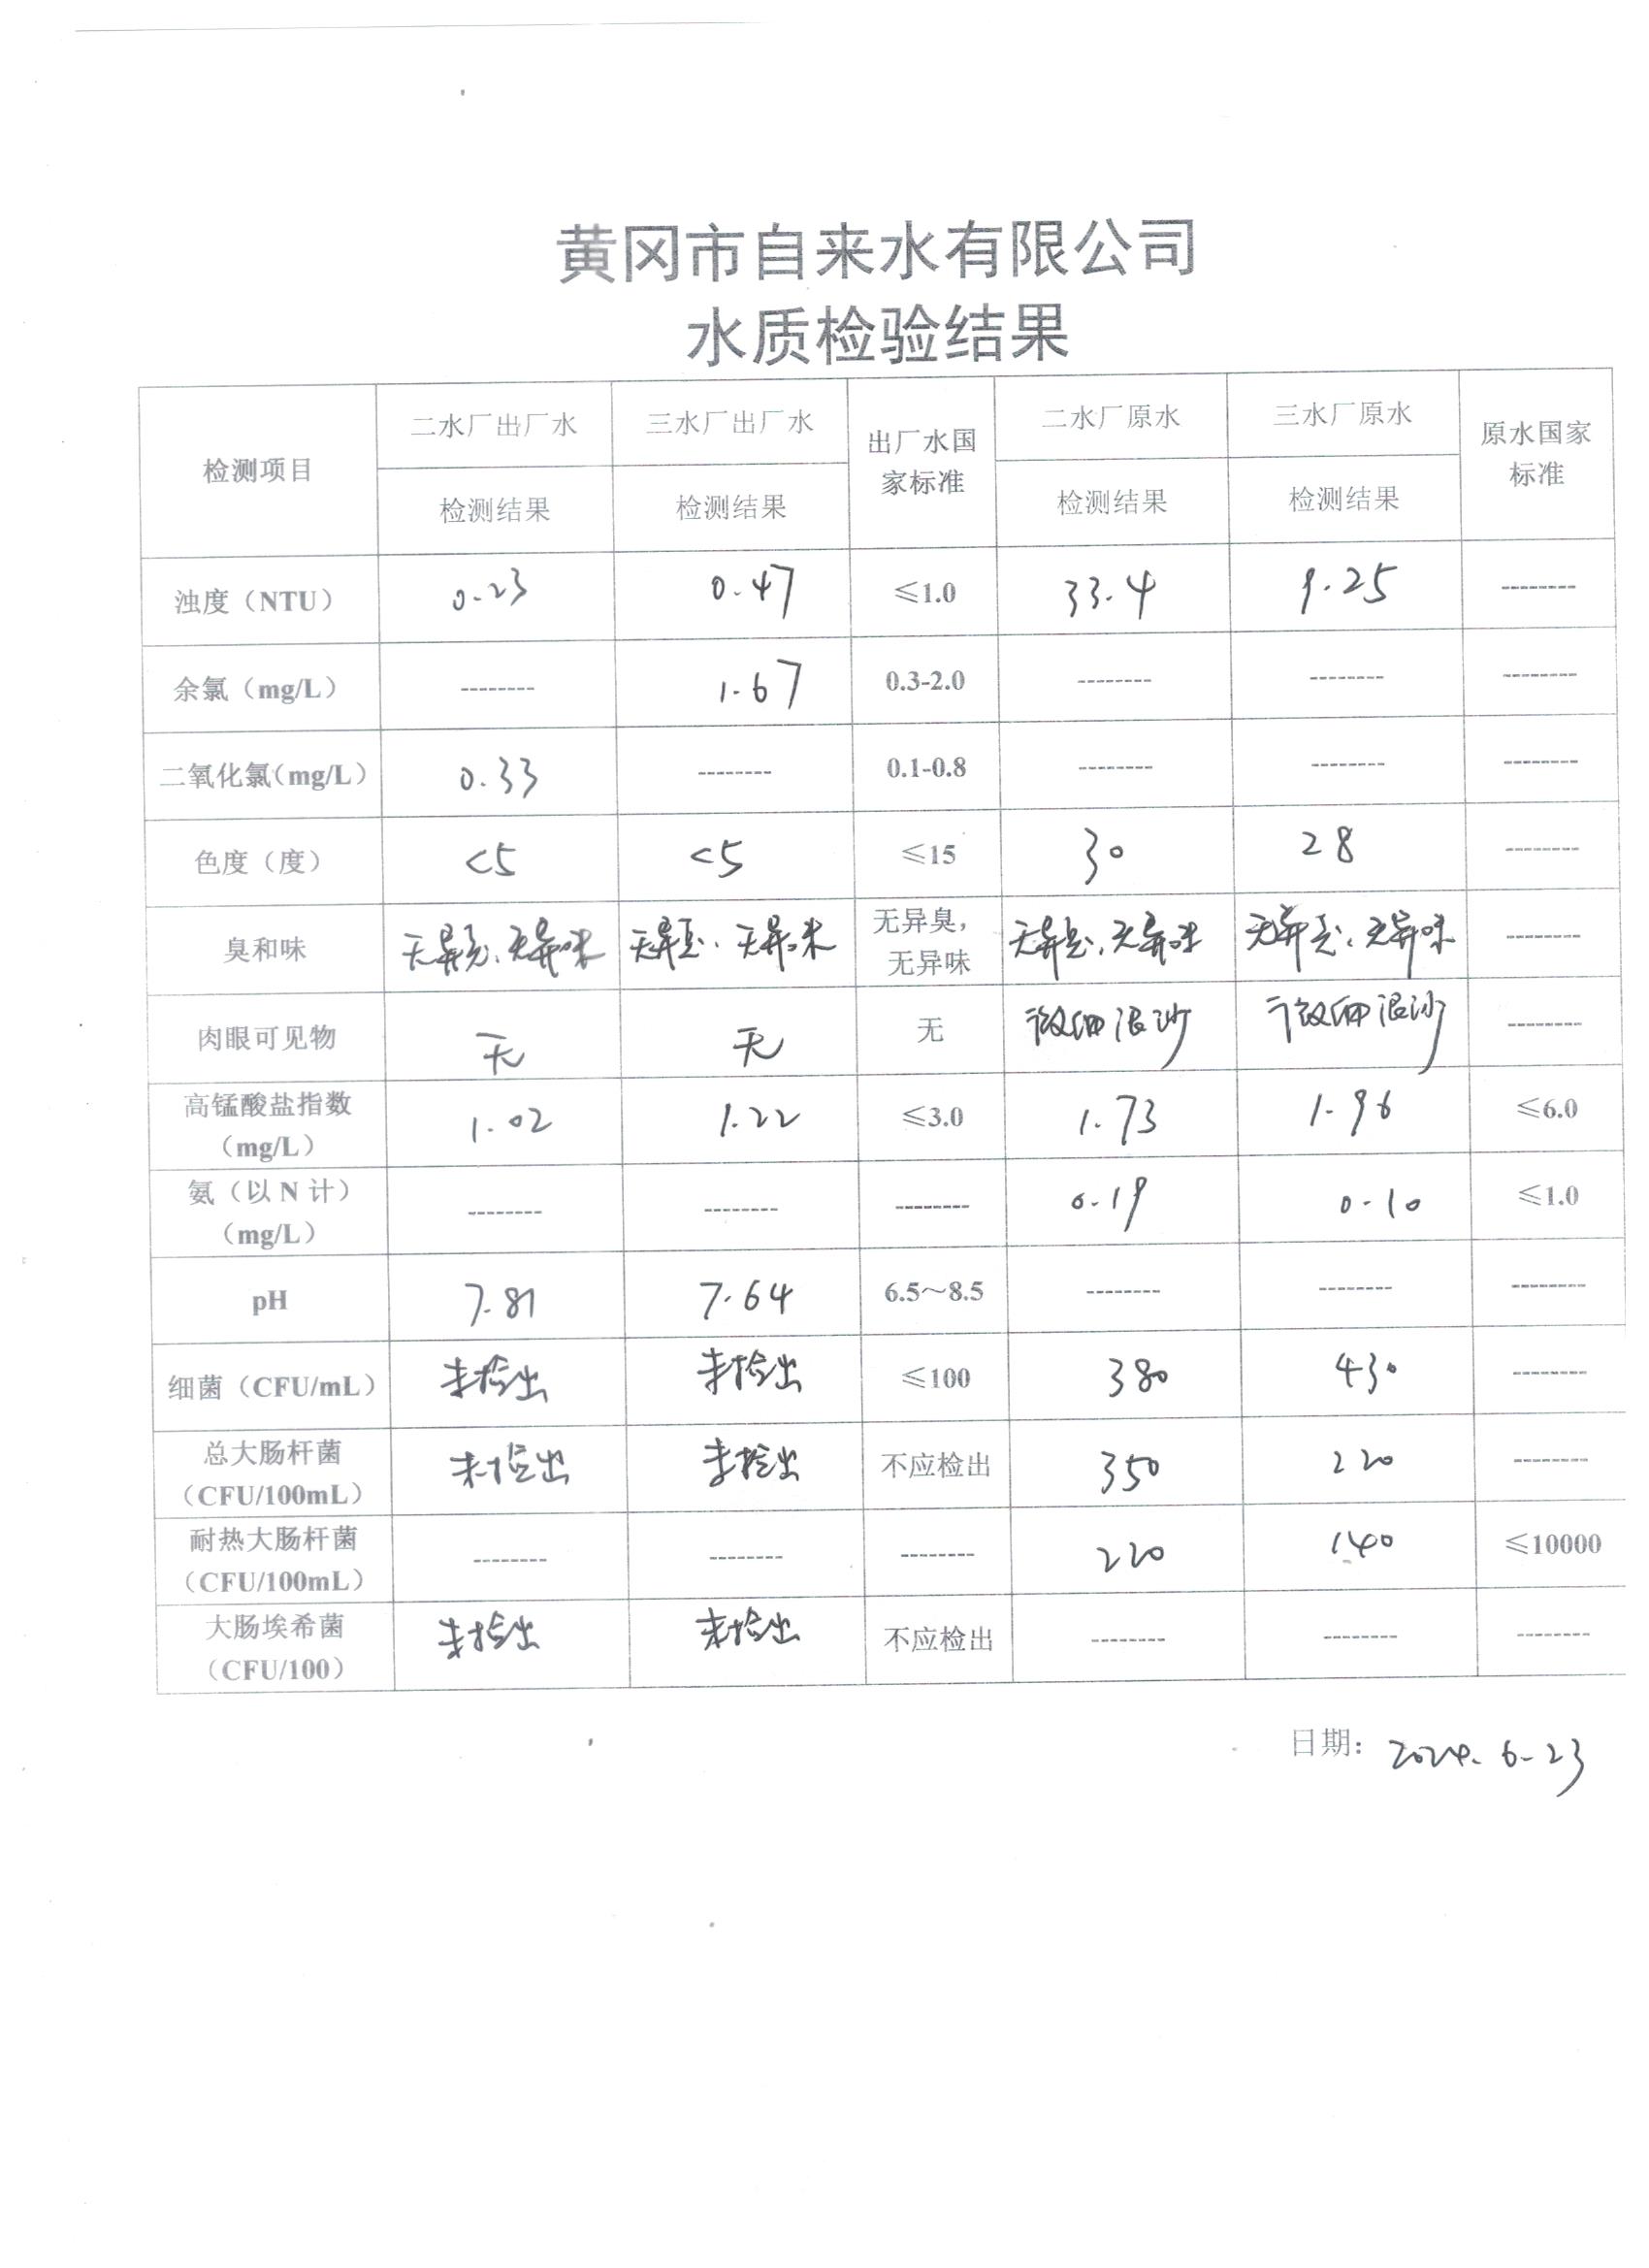 黄冈市自来水有限公司
水质检验结果
检测项目 二水厂出厂水 三水厂出厂水 出厂水国家标准 二水厂原水 三水厂原水 原水国家标准
检测结果 检测结果 检测结果 检测结果
浊度（NTU） 0.23 0.47 ≤1.0 33.4 9.25 --------
余氯（mg/L） -------- 1.67 0.3-2.0 -------- -------- --------
二氧化氯（mg/L） 0.33 -------- 0.1-0.8 -------- -------- --------
色度（度） <5 <5 ≤15 30 28 --------
臭和味 无异臭、无异味 无异臭、无异味 无异臭，无异味 无异臭、无异味 无异臭、无异味 --------
肉眼可见物 无 无 无 微细泥沙 微细泥沙 --------
高锰酸盐指数（mg/L） 1.02 1.22 ≤3.0 1.73 1.96 ≤6.0
氨（以 N 计）（mg/L） -------- -------- -------- 0.19 0.10 ≤1.0
pH 7.81 7.64 6.5～8.5 -------- -------- --------
细菌（CFU/mL） 未检出 未检出 ≤100 380 430 --------
总大肠杆菌（CFU/100mL） 未检出 未检出 不应检出 350 220 --------
耐热大肠杆菌（CFU/100mL） -------- -------- -------- 220 140 ≤10000
大肠埃希菌（CFU/100） 未检出 未检出 不应检出 -------- -------- --------
日期：2024.6-23